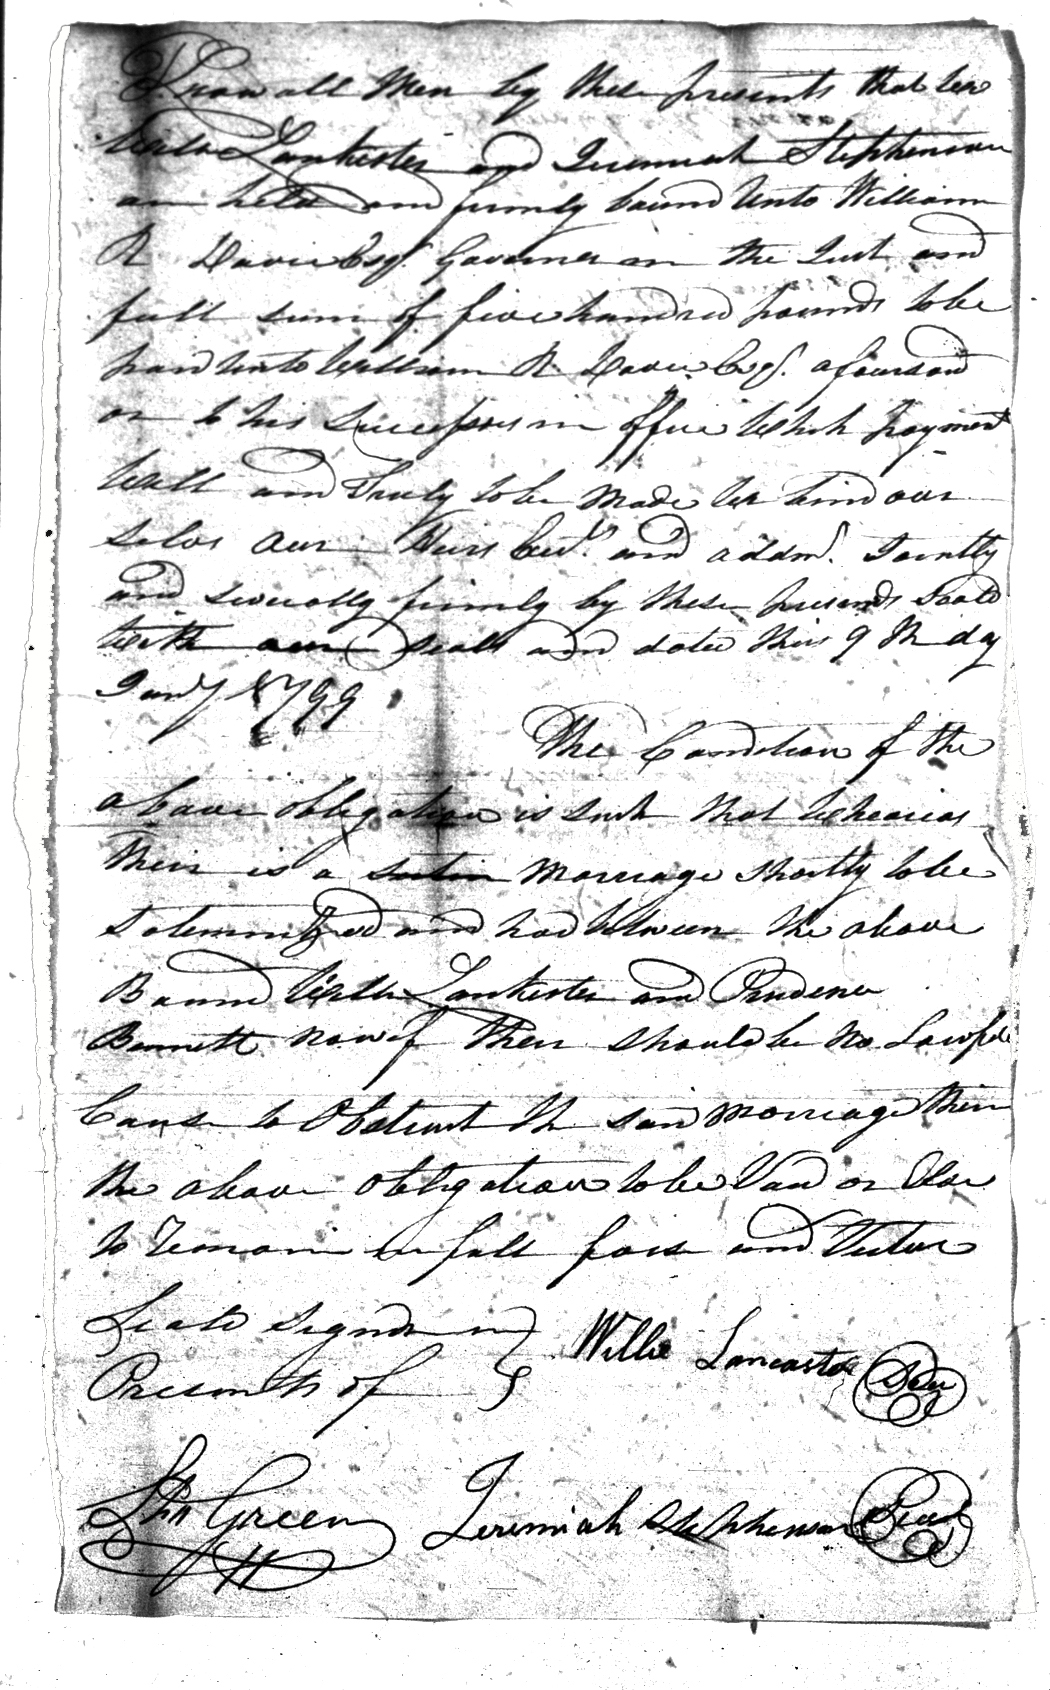 Know all Men by these presents that We
Willie Lankester and Jeremiah Stephenson
are held and firmly bound Unto William
R Davie Esqr. Governer in the Just and
full sum of five hundred pounds to be
paid Unto William R Davie Esqr. aforesaid
or to his Successors in office Which payment
Well and Truly to be Made We bind our
selvs our Heirs Exrs. and addmrs. Jointly
and severally firmly by these presents Seald
With our seals and dated this 9th day
Jany 1799
The Condition of the
above obligation is such that Whereas
their is a Marriage shortly to be
solemnized and had between the above
Bound Willie Lankester and Prudence
Bennett now if there should be No Lawfull
Cause to Obstruct the said Marriage then
the above obligation to be Void or Else
to Remain in full force and Virtue
Seald signd in
Presents of
Willie Lancaster Seal
Jno Green
Jeremiah Stephenson Seal